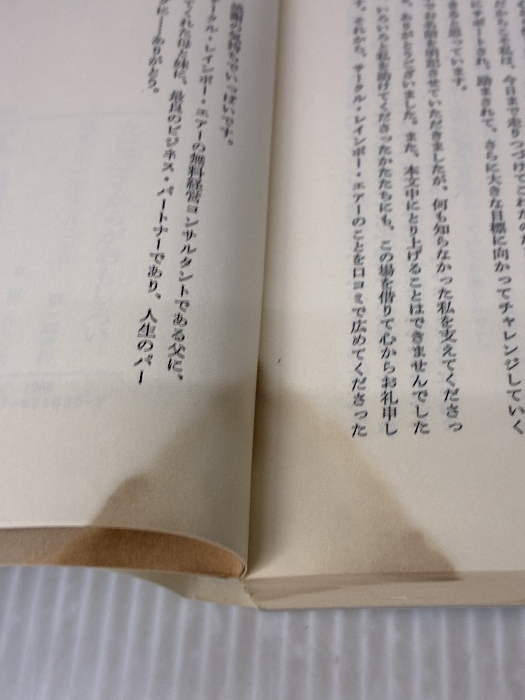 だからこそ私は、今日まで走りつづけてこれたの
にサポートされ、励まされて、さらに大きな目標に向かってチャレンジしていく
きると思っています。
でお名前を明記させていただきましたが、何も知らなかった私を支えてくださっ
、ありがとうございました。また、本文中にとり上げることはできませんでした
、いろいろと私を助けてくださったかたたちにも、この場を借りて心からお礼申し
す。それから、サークル・レインボー・エアーのことを口コミで広めてくださった
感謝の気持ちでいっぱいです。
サークル・レインボー・エアーの無料経営コンサルタントである父に、
てくれた母と妹に、最良のビジネス・パートナーであり、人生のパー
に――ありがとう。